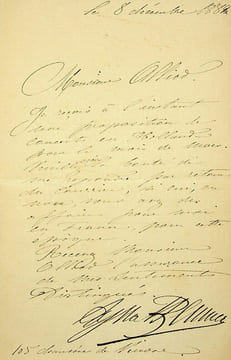 le 8 décembre 1884
Monsieur
Je reçois à l'instant
une proposition de
concerts en Hollande
pour le mois de mars
bonté de
me répondre par retour
du courrier, si oui, ou
non, vous avez des
affaires pour moi
en France, pour cette
époque
Recevez Monsieur
l'assurance
de mes sentiments
distingués
105 chaussée de